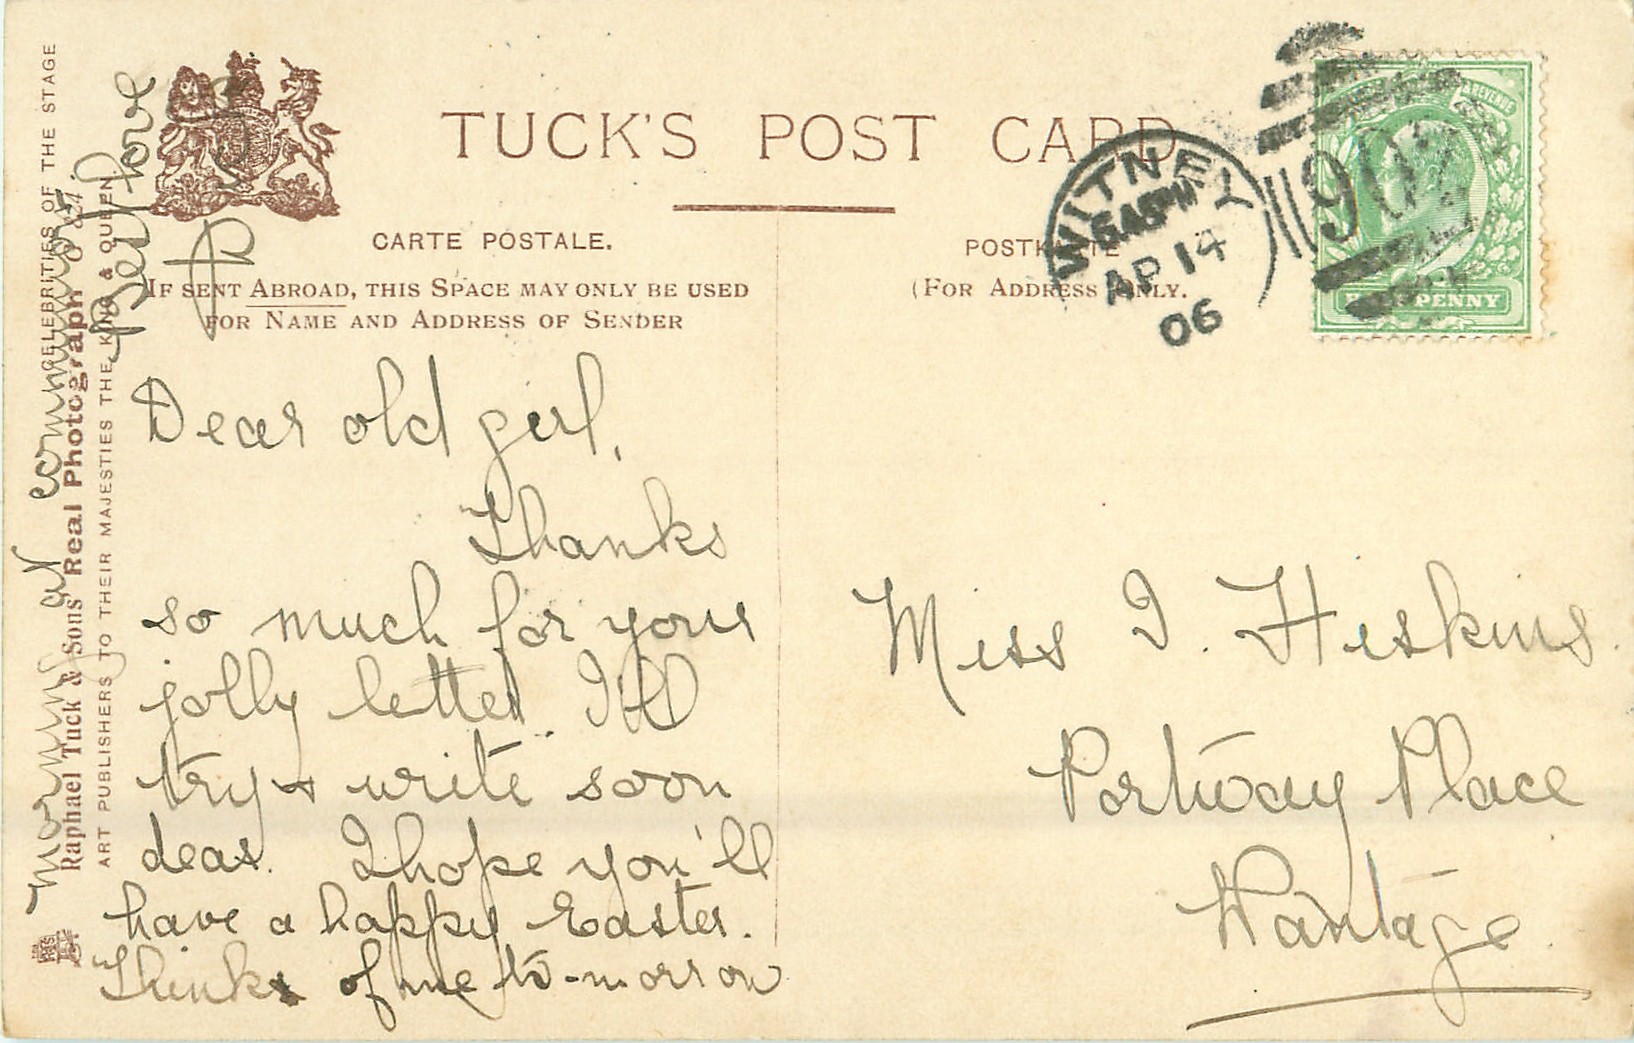 TUCK'S POST CARD
CARTE POSTALE.
POSTKARTE
IF SENT ABROAD, THIS SPACE MAY ONLY BE USED
FOR NAME AND ADDRESS OF SENDER
(FOR ADDRESS ONLY.
WITNEY
6.45PM
AP 14
06
& REVENUE
HALFPENNY
Dear old girl,
Thanks
so much for your
jolly letter. I'll
try & write soon
dear. I hope you'll
have a happy Easter.
Think of me to-morrow
morning at communion
Best love
Miss I. Hiskins.
Portway Place
Wantage
CELEBRITIES OF THE STAGE
Raphael Tuck & Sons' Real Photograph
ART PUBLISHERS TO THEIR MAJESTIES THE KING & QUEEN